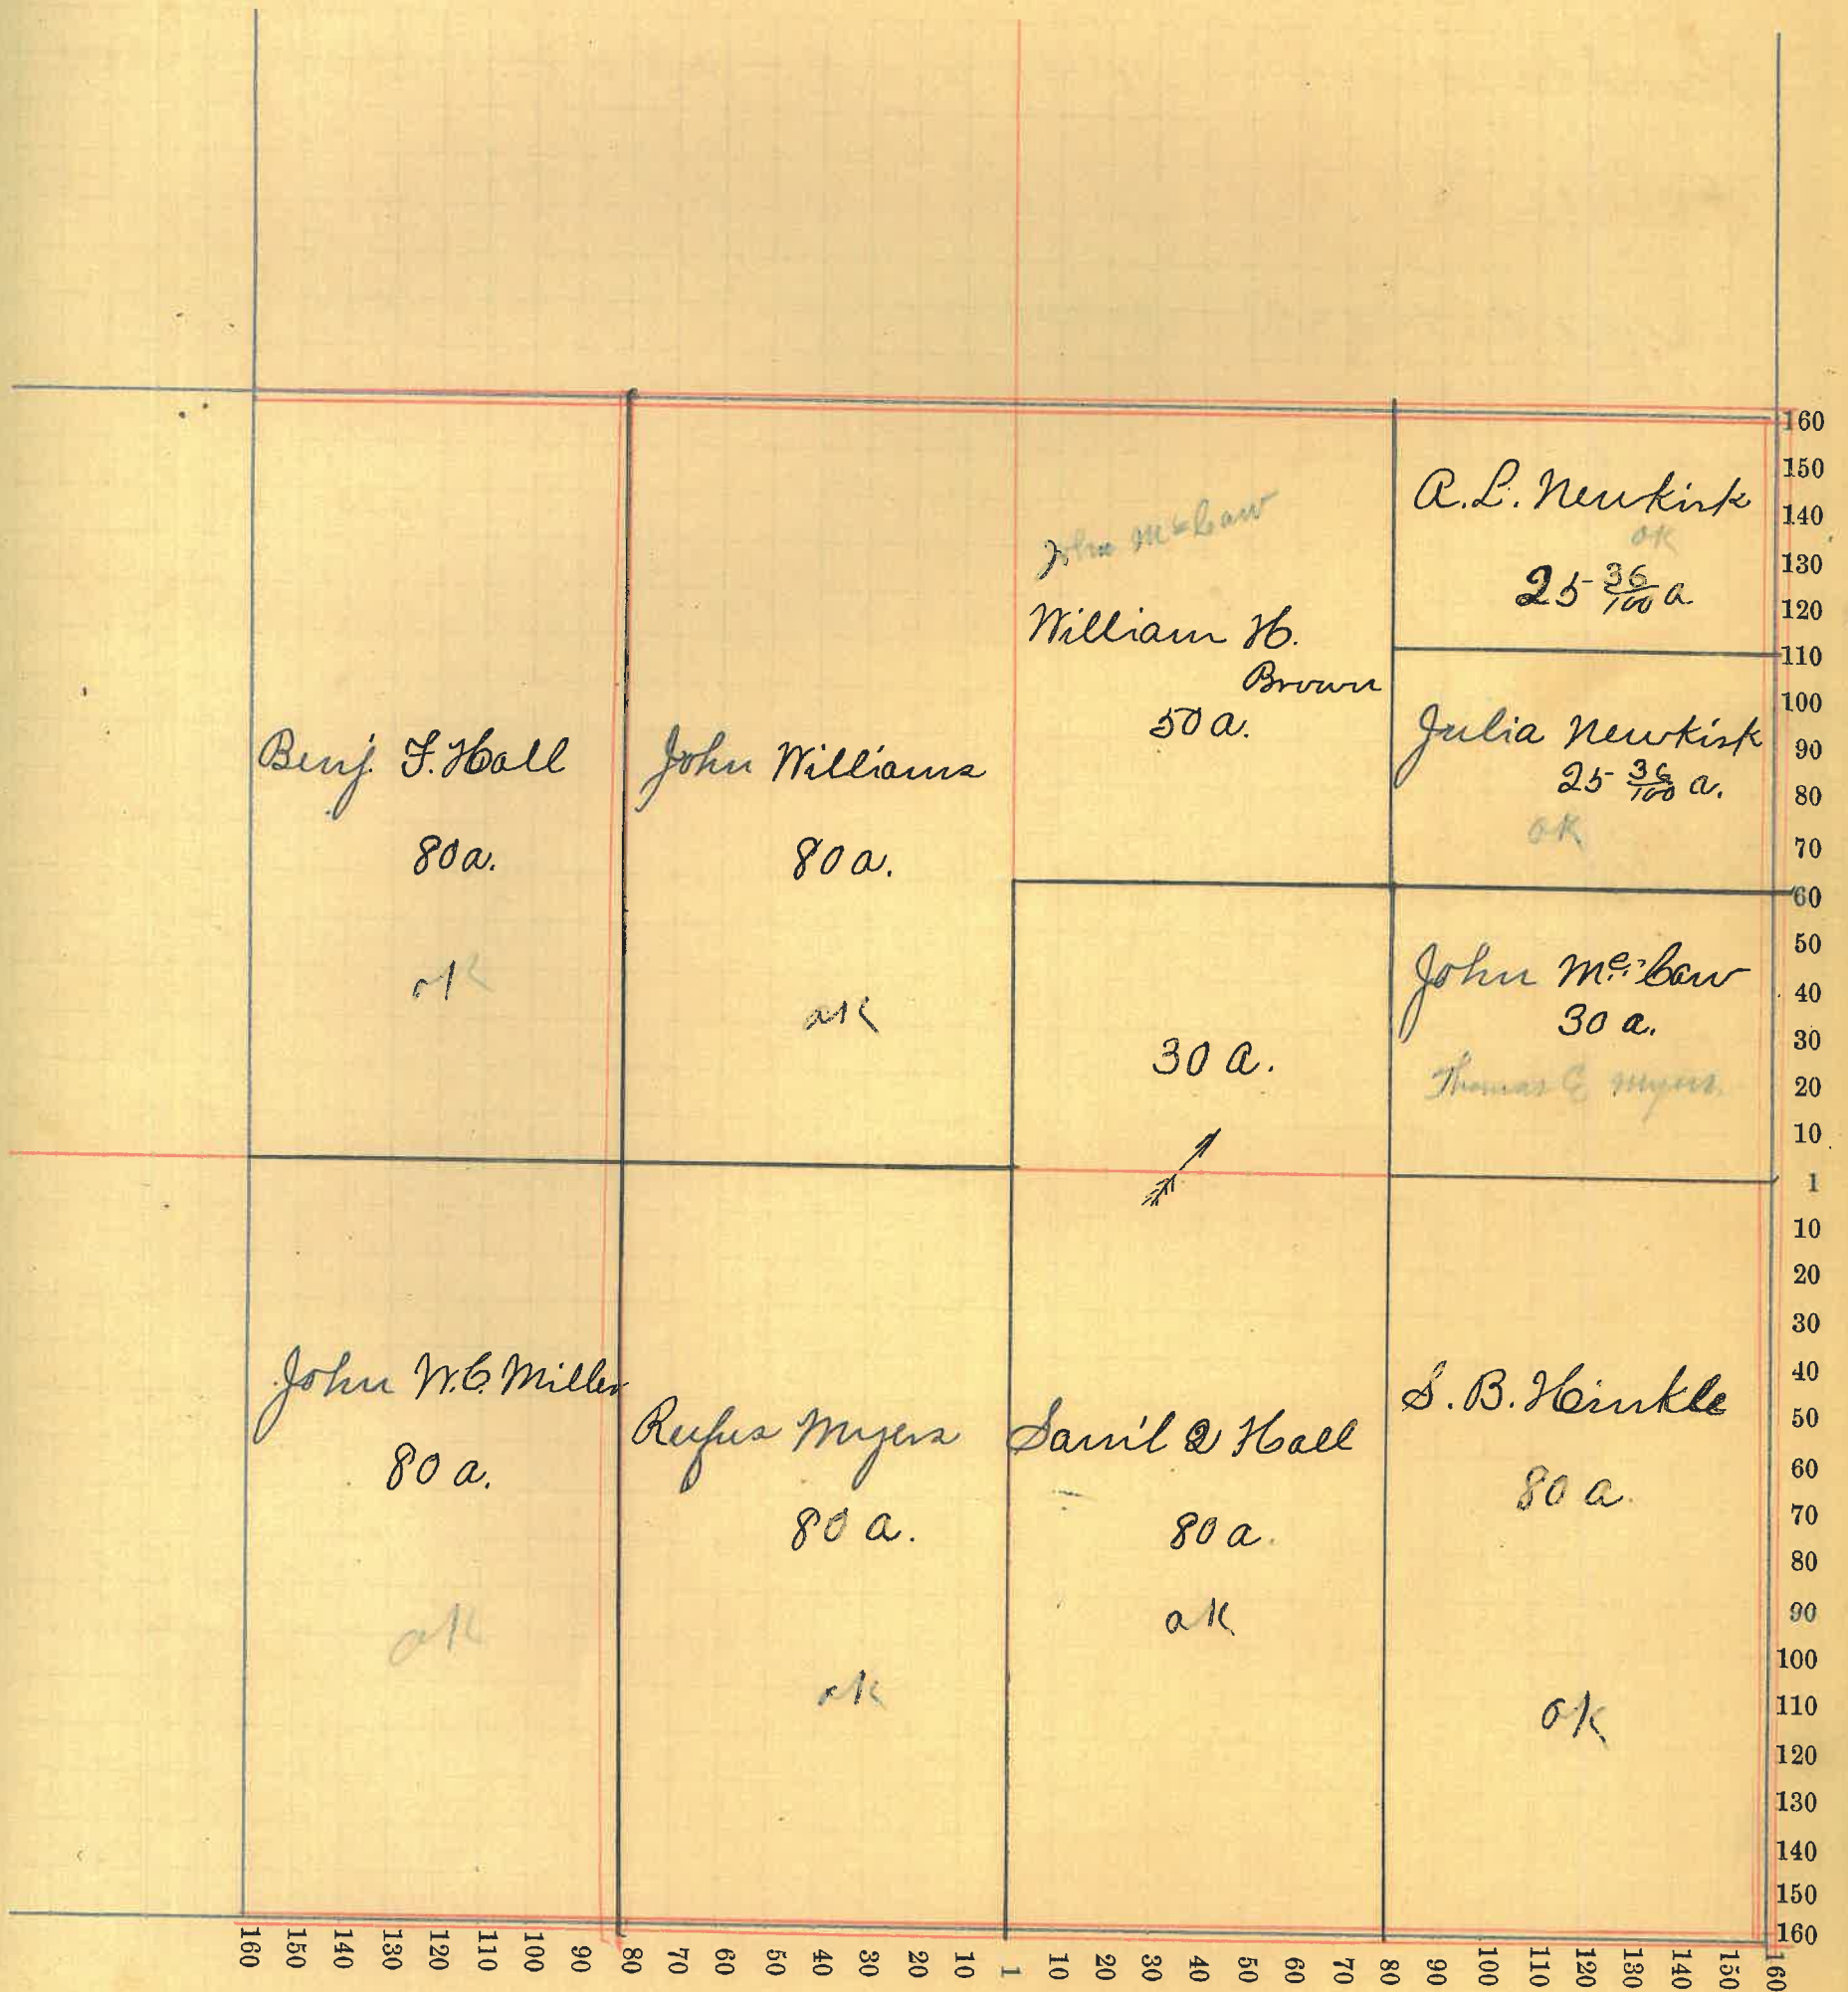 Benj. F. Hall
80 a.
ok
John Williams
80 a.
ok
John McCaw
William H.
Brown
50 a.
A. L. Newkirk
ok
25 36/100 a.
Julia Newkirk
25 36/100 a.
ok
30 a.
John McCaw
30 a.
Thomas E Myers
John W. C. Miller
80 a.
ok
Rufus Myers
80 a.
ok
Sam'l Q Hall
80 a.
ok
S. B. Hinkle
80 a.
ok
160
150
140
130
120
110
100
90
80
70
60
50
40
30
20
10
1
10
20
30
40
50
60
70
80
90
100
110
120
130
140
150
160
160 150 140 130 120 110 100 90 80 70 60 50 40 30 20 10 1 10 20 30 40 50 60 70 80 90 100 110 120 130 140 150 160